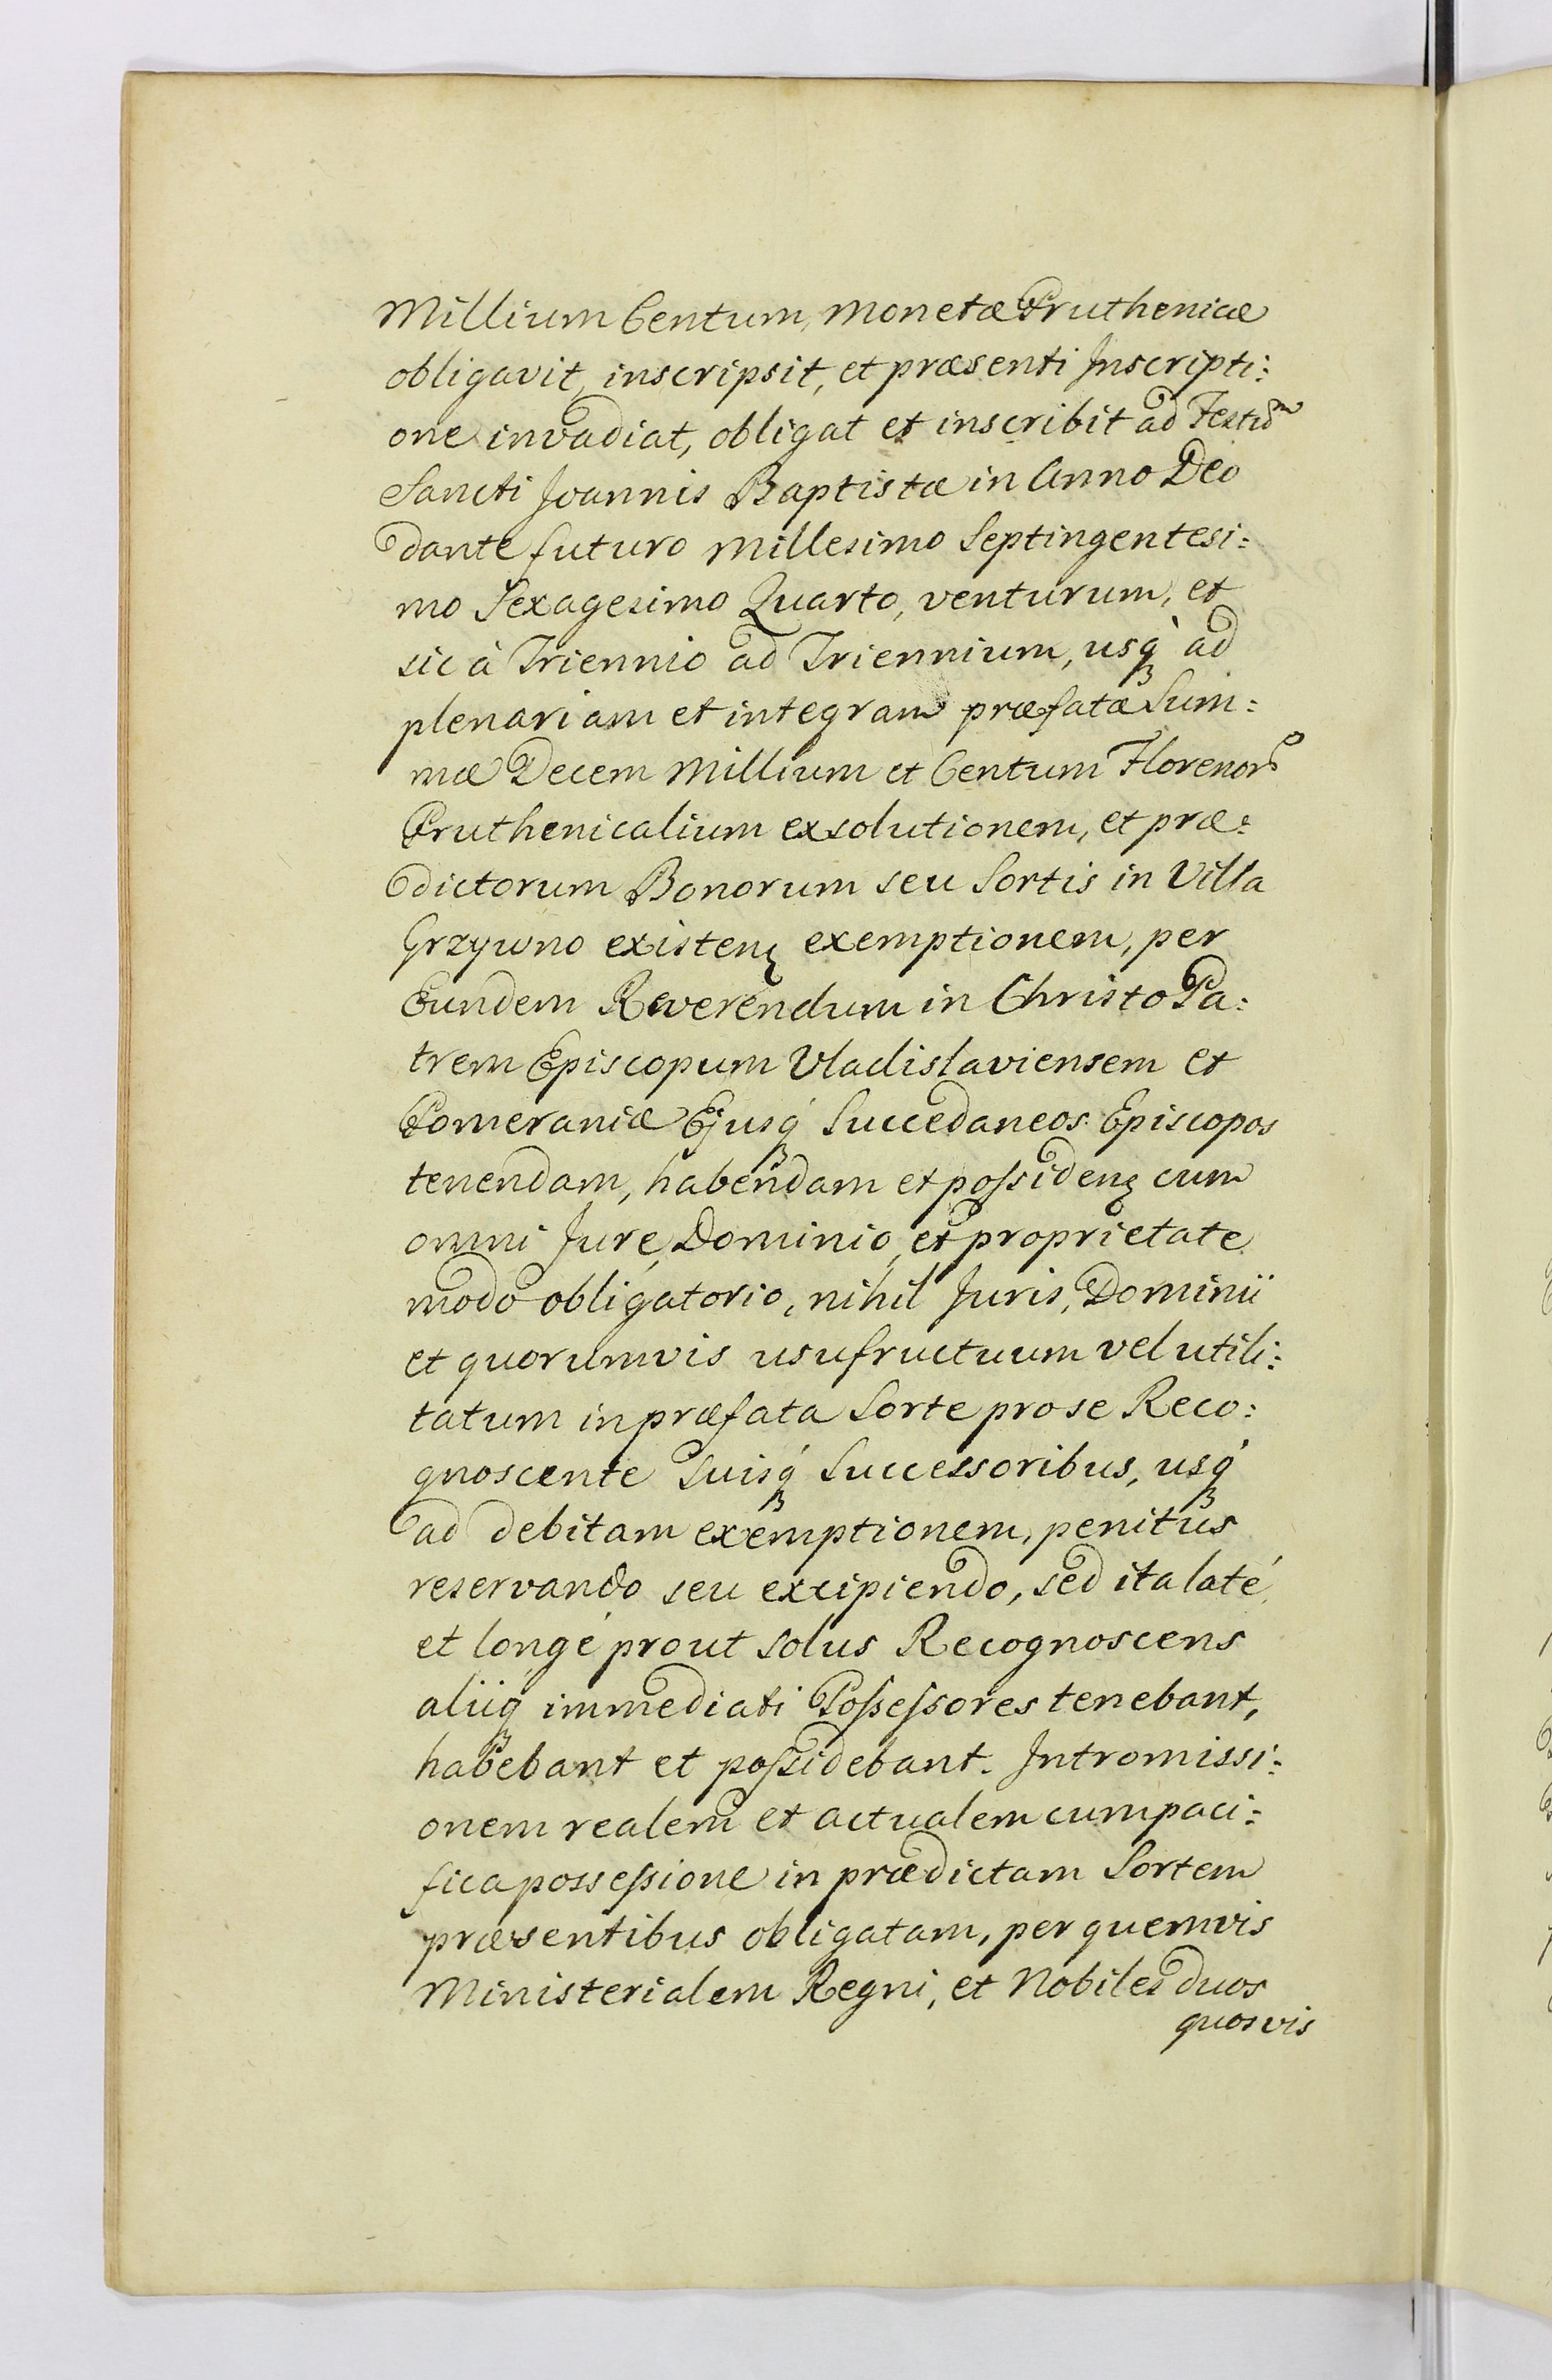 Millium Centum, Monetæ Pruthenicæ
obligavit, inscripsit, et præsenti Inscripti:
one invadiat, obligat et inscribit ad Festū
Sancti Joannis Baptistæ in Anno Deo
dante futuro Millesimo Septingentesi:
mo Sexagesimo Quarto, venturum, et
sic à Triennio ad Triennium, usq́ ad
plenariam et integram præfatæ Sum:
mæ Decem Millium et Centum Florenor
Pruthenicalium exsolutionem, et præ:
dictorum Bonorum seu Sortis in Villa
Grzywno existenꝫ exemptionem, per
Eundem Reverendum in Christo Pa:
trem Episcopum Vladislaviensem et
Pomeraniæ Ejusq́ Succedaneos Episcopos
tenendam, habendam et poſsidenꝫ cum
omni Jure, Dominio, et proprietate
modo obligatorio, nihil Juris, Dominii
et quorumvis usufructuum vel utili:
tatum in præfata Sorte pro se Reco:
gnoscente Suisq́ Successoribus, usq́
ad debitam exemptionem, penitus
reservando seu excipiendo, sed ita laté
et longé prout solus Recognoscens
aliiq́ immediati Poſseſsores tenebant,
habebant et poſsidebant. Intromissi:
onem realem et actualem cum paci:
fica posseſsione in prædictam Sortem
præsentibus obligatam, per quemvis
Ministerialem Regni, et Nobiles duos
quosvis